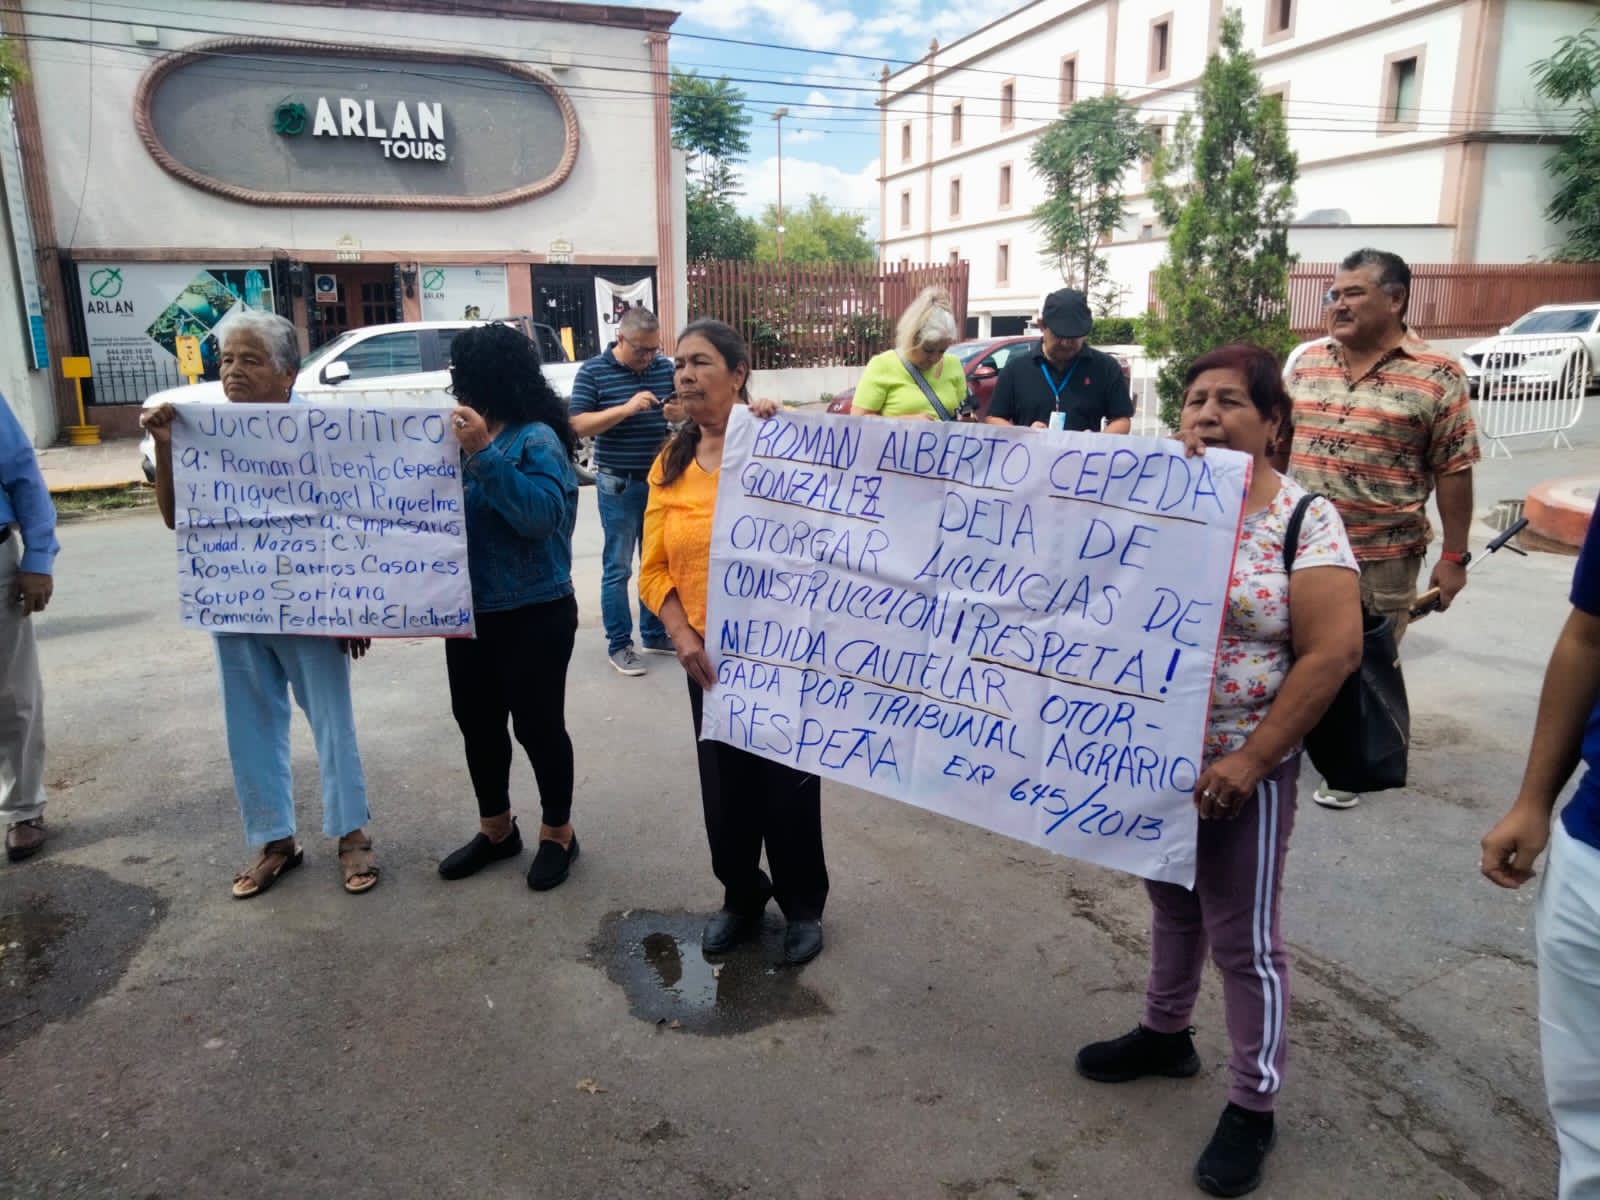 ARLAN
TOURS
ARLAN
ARLAN
JUICIO POLITICO
a: Roman Alberto Cepeda
y: Miguel Angel Riquelme
- Por Proteger a: empresarios
- Ciudad. Nazas: C.V.
- Rogelio Barrios Casares
- Grupo Soriana
- Comición Federal de
ROMAN ALBERTO CEPEDA
GONZALEZ DEJA DE
OTORGAR LICENCIAS DE
CONSTRUCCION ¡RESPETA!
MEDIDA CAUTELAR OTOR-
GADA POR TRIBUNAL AGRARIO
RESPETA EXP 645/2013